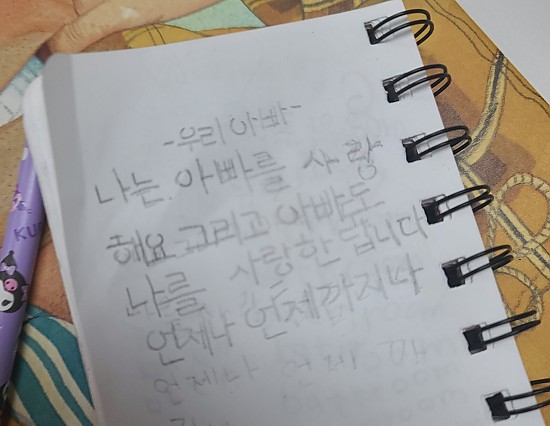 -우리 아빠-
나는 아빠를 사랑
해요 그리고 아빠도
나를 사랑한답니다
언제나 언제까지나
언제나 언제까
KU